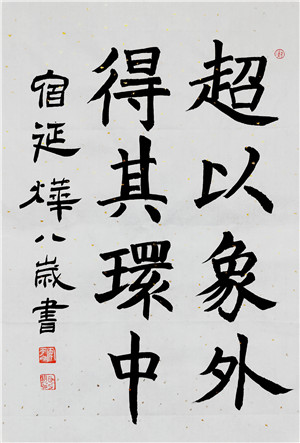 超以象外
得其環中
宿延燁八歲書